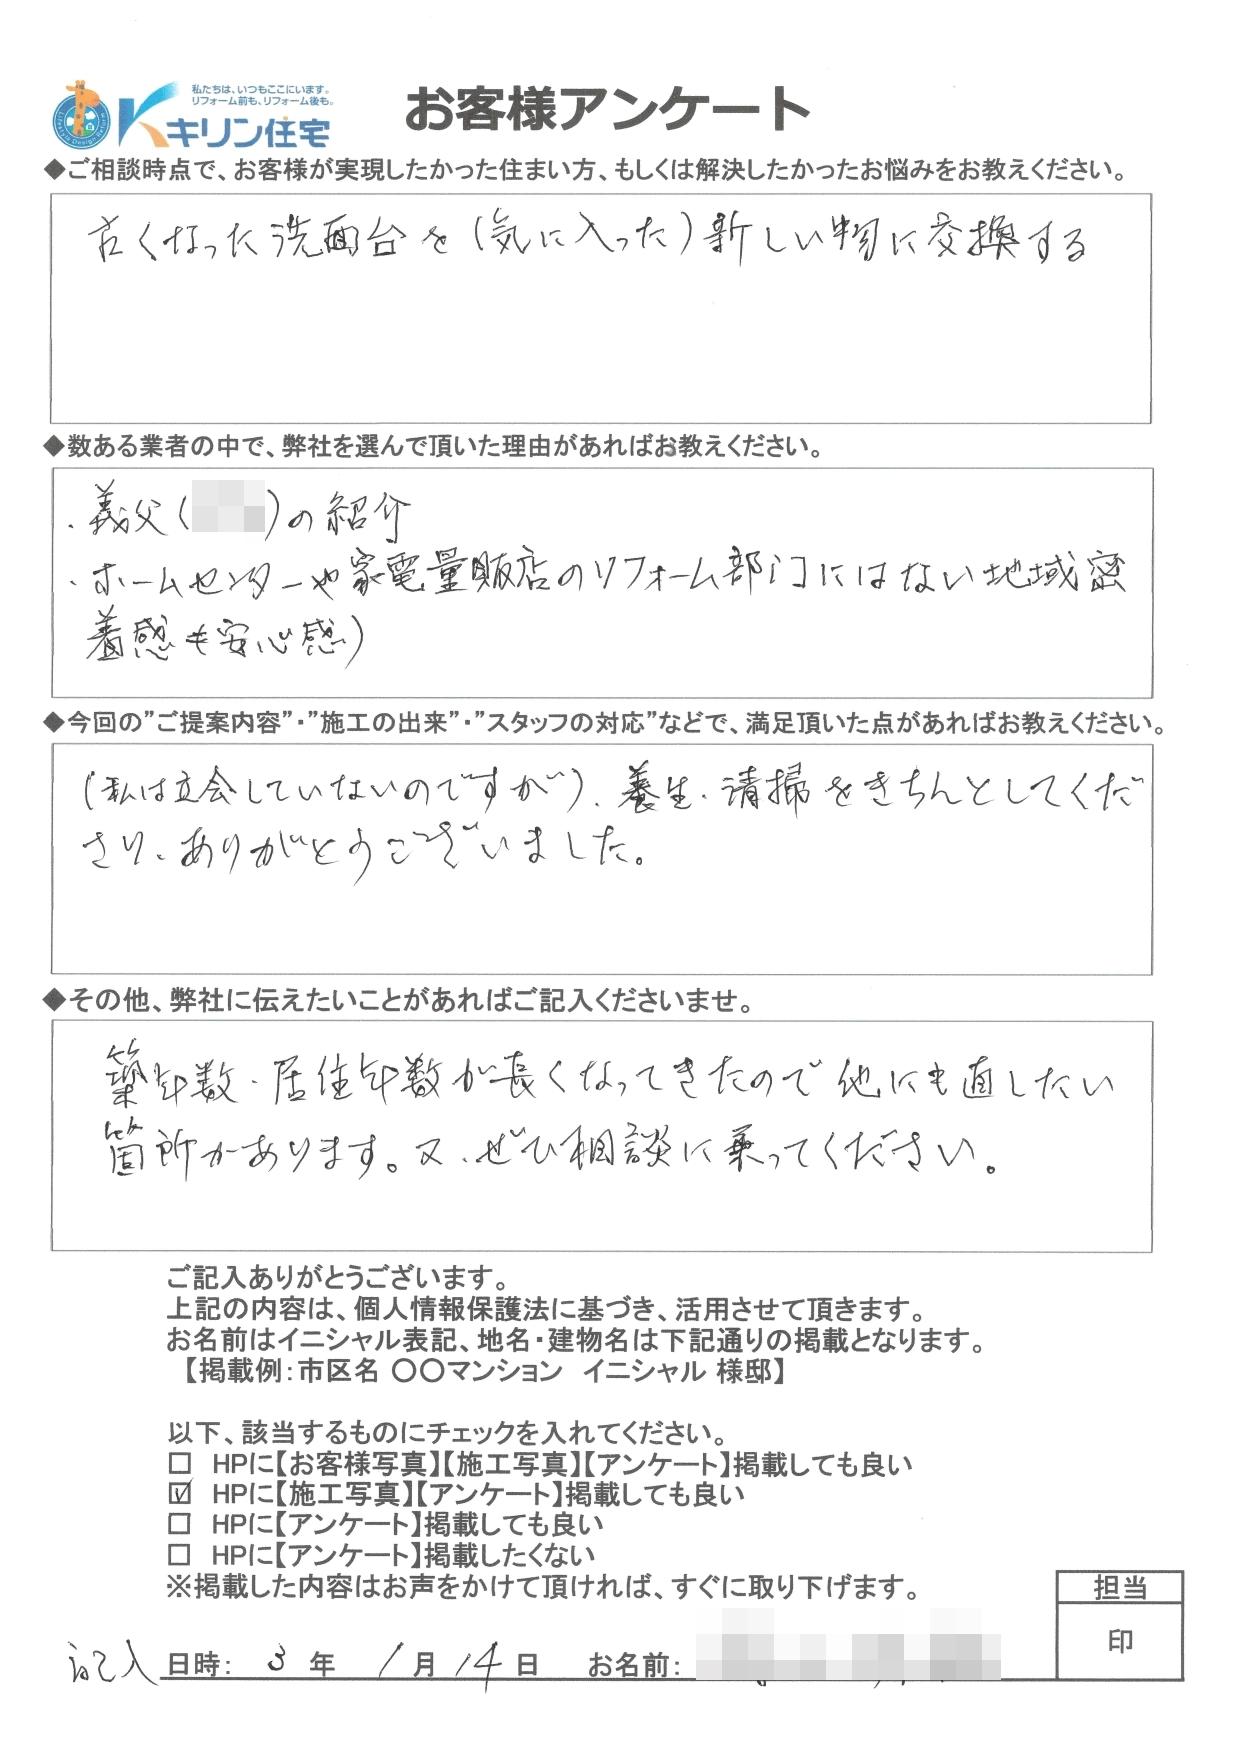 私たちは、いつもここにいます。
リフォーム前も、リフォーム後も。
キリン住宅
お客様アンケート
◆ご相談時点で、お客様が実現したかった住まい方、もしくは解決したかったお悩みをお教えください。
古くなった洗面台を(気に入った)新しい物に交換する
◆数ある業者の中で、弊社を選んで頂いた理由があればお教えください。
・義父( )の紹介
・ホームセンターや家電量販店のリフォーム部门にはない地域密
着感も安心感)
◆今回の”ご提案内容”・”施工の出来”・”スタッフの対応”などで、満足頂いた点があればお教えください。
(私は立会していないのですが)、養生・清掃をきちんとしてくだ
さり、ありがとうございました。
◆その他、弊社に伝えたいことがあればご記入くださいませ。
築年数・居住年数が長くなってきたので他にも直したい
箇所があります。又、ぜひ相談に乗ってください。
ご記入ありがとうございます。
上記の内容は、個人情報保護法に基づき、活用させて頂きます。
お名前はイニシャル表記、地名・建物名は下記通りの掲載となります。
【掲載例:市区名 〇〇マンション イニシャル 様邸】
以下、該当するものにチェックを入れてください。
□ HPに【お客様写真】【施工写真】【アンケート】掲載しても良い
☑ HPに【施工写真】【アンケート】掲載しても良い
□ HPに【アンケート】掲載しても良い
□ HPに【アンケート】掲載したくない
※掲載した内容はお声をかけて頂ければ、すぐに取り下げます。
担当
印
記入 日時: 3 年 1 月 14 日 お名前: